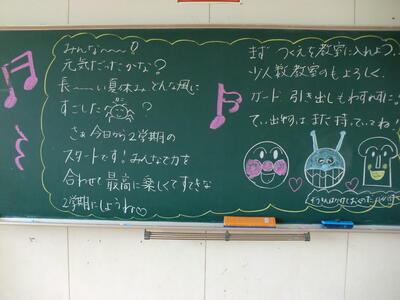 みんな〜〜!
元気だったかな?
長〜〜い夏休みどんな風に
すごした?
さぁ今日から2学期の
スタートです!みんなで力を
合わせて最高に楽しくてすてきな
2学期にしようね♡
まず つくえを教室に入れよう
少人数教室のもよろしく
ガード 引き出しもわすれずに!
まだ待っていてね!